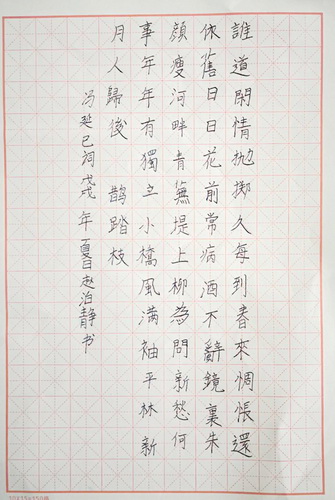 誰道閑情抛擲久每到春來惆悵還
依舊日日花前常病酒不辭鏡裏朱
顔瘦河畔青蕪堤上柳為問新愁何
事年年有獨立小橋風滿袖平林新
月人歸後 鹊踏枝
冯延已词戊戌年夏日赵泊静书